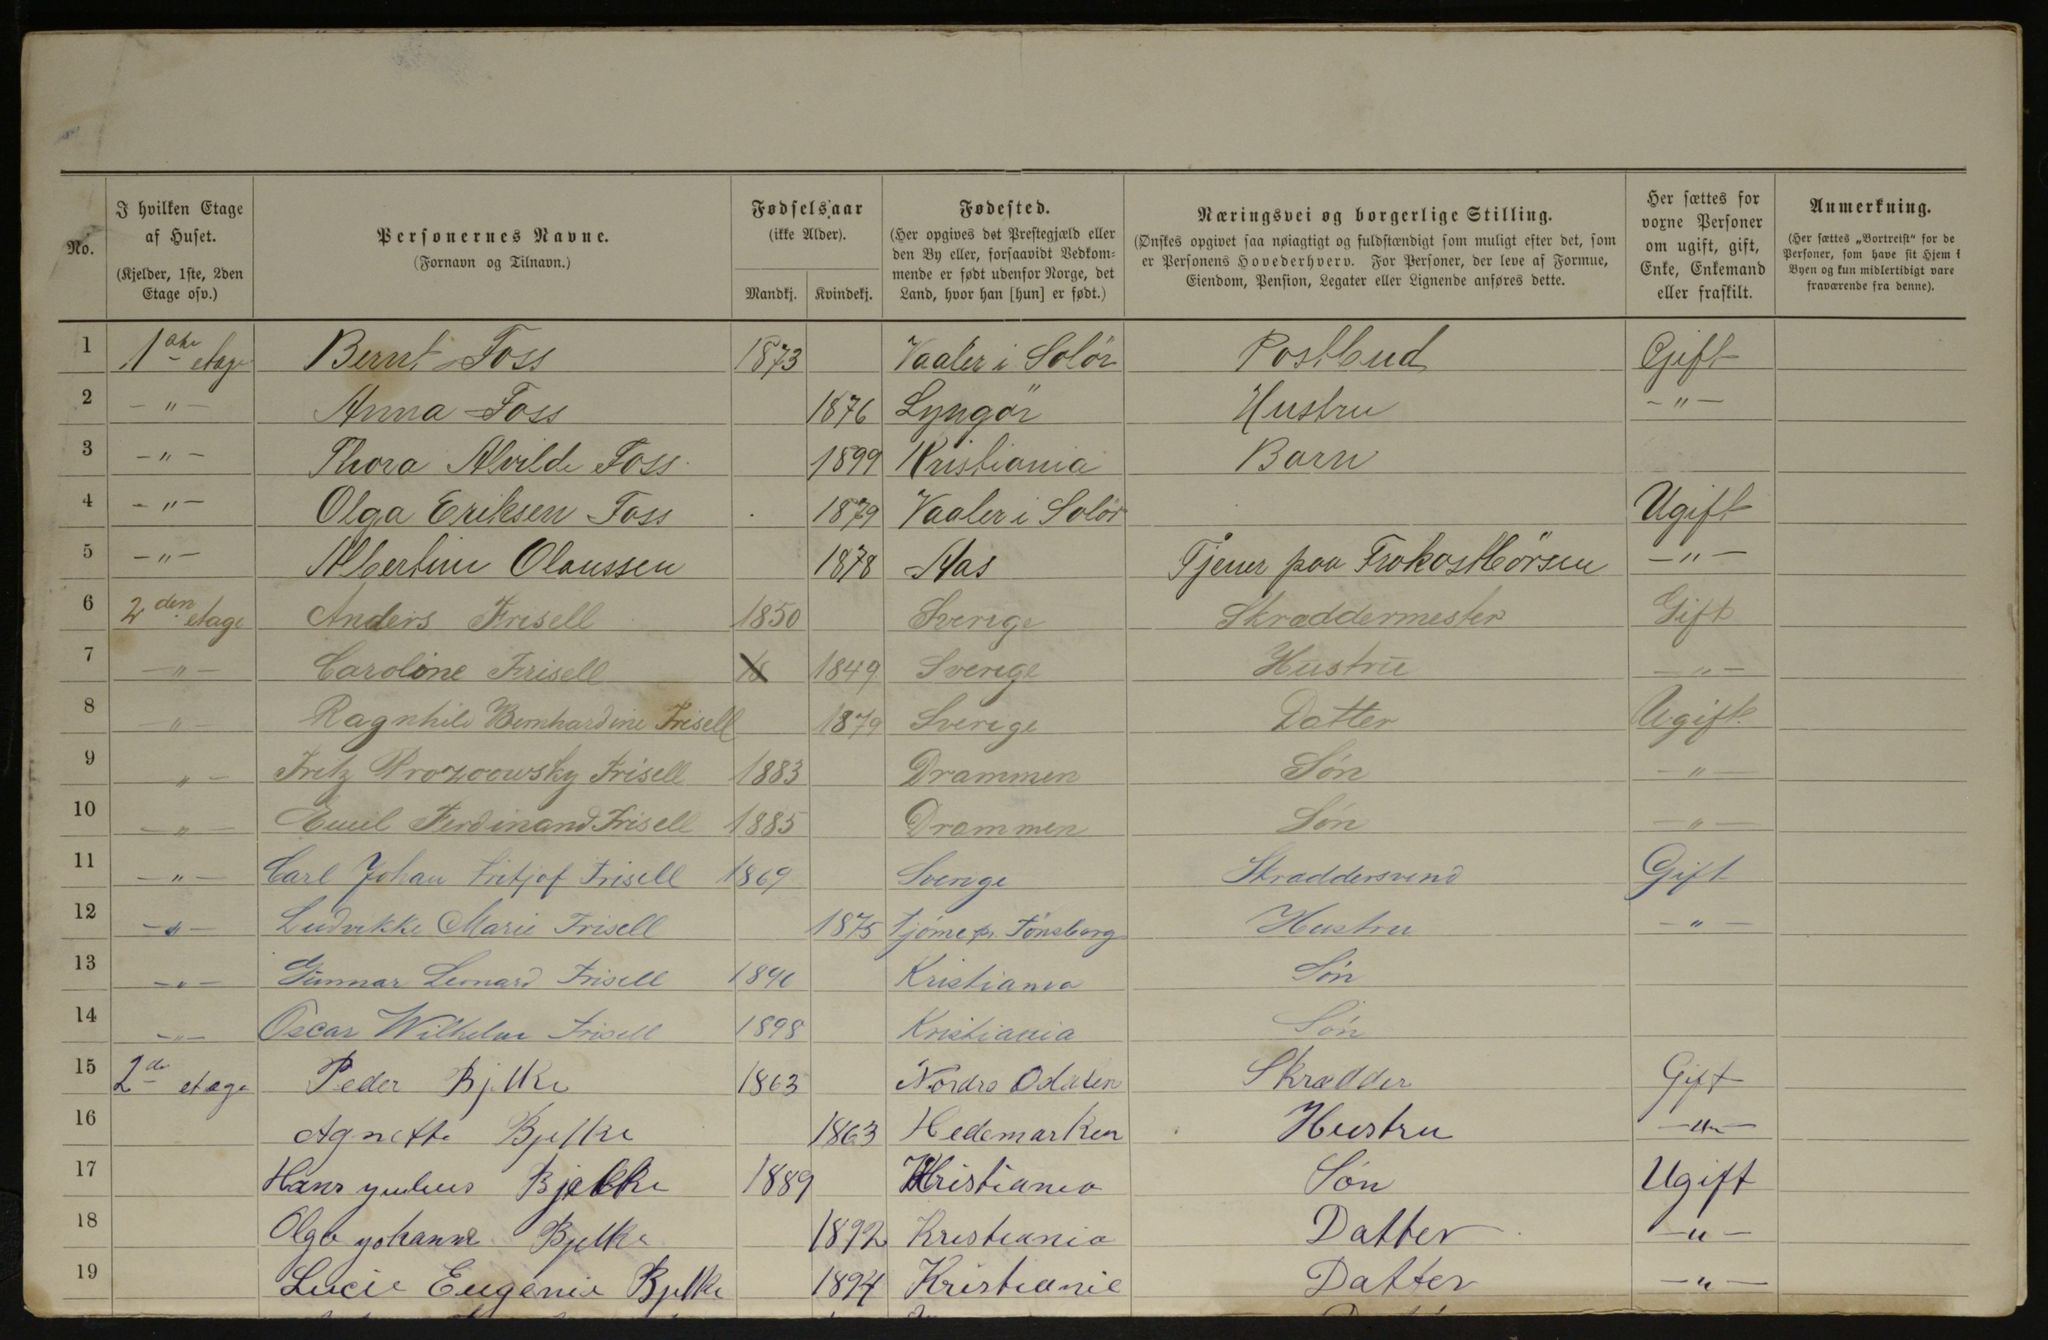 No.
I hvilken Etage af Huset. (Kjelder, 1ste, 2den Etage osv.)
Personernes Navne. (Fornavn og Tilnavn.)
Fødselsaar (ikke Alder). Mandkj. Kvindekj.
Fødested. (Her opgives det Prestegjæld eller den By eller, forsaavidt Vedkommende er født udenfor Norge, det Land, hvor han [hun] er født.)
Næringsvei og borgerlige Stilling. (Ønskes opgivet saa nøiagtigt og fuldstændigt som muligt efter det, som er Personens Hovederhverv. For Personer, der leve af Formue, Eiendom, Pension, Legater eller Lignende anføres dette.
Her sættes for voxne Personer om ugift, gift, Enke, Enkemand eller fraskilt.
Anmerkning. (Her sættes „Bortreist" for de Personer, som have sit Hjem i Byen og kun midlertidigt vare fraværende fra denne).
1 1ste etage Bernt Foss 1873 Vaaler i Solör Postbud Gift
2 -"- Anna Foss 1876 Lyngör Hustru -"-
3 -"- Thora Alvilde Foss 1899 Kristiania Barn
4 -"- Olga Eriksen Foss 1879 Vaaler i Solör Ugift
5 -"- Albertine Olaussen 1878 Aas Tjener paa Frokostbörsen -"-
6 2den etage Anders Frisell 1850 Sverige Skræddermester Gift
7 -"- Caroline Frisell 18 1849 Sverige Hustru -"-
8 -"- Ragnhild Bernhardine Frisell 1879 Sverige Datter Ugift
9 " - Fretz Frisell 1883 Drammen Søn -"-
10 -"- Emil Ferdinand Frisell 1885 Drammen Søn -"-
11 -"- Carl Johan Fritjof Frisell 1869 Sverige Skræddersvend Gift
12 -"- Ludvikke Marie Frisell 1875 Tjöme pr. Tönsberg Hustru -"-
13 -"- Gunnar Leonard Frisell 1896 Kristiania Søn
14 -"- Oscar Wilhelm Frisell 1898 Kristiania Søn
15 2de etage Peder Bjelke 1863 Nordre Odalen Skrædder Gift
16 Agnethe Bjelke 1863 Hedemarken Hustru -"-
17 Hans yulius Bjelke 1889 Kristiania Søn Ugift
18 Olga yohanne Bjelke 1892 Kristiania Datter -"-
19 Lucie Eugenie Bjelke 1894 Kristiania Datter -"-